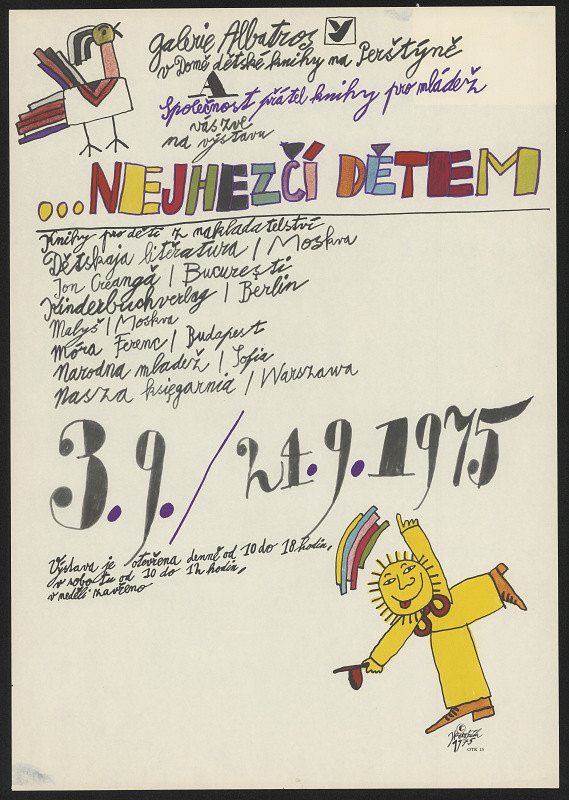 galerie Albatros
v Domě dětské knihy na Perštýně
A
Společnost přátel knihy pro mládež
vás zve
na výstavu
...NEJHEZČÍ DĚTEM
Knihy pro děti z nakladatelství
Dětskaja litěratura / Moskva
Jon Creangă / Bucureşti
Kinderbuchverlag / Berlin
Malyš / Moskva
Móra Ferenc / Budapest
Narodna mladež / Sofia
Nasza księgarnia / Warszawa
3.9./24.9.1975
Výstava je otevřena denně od 10 do 18 hodin,
v sobotu od 10 do 14 hodin,
v neděli zavřeno
©
1975
OTK 23